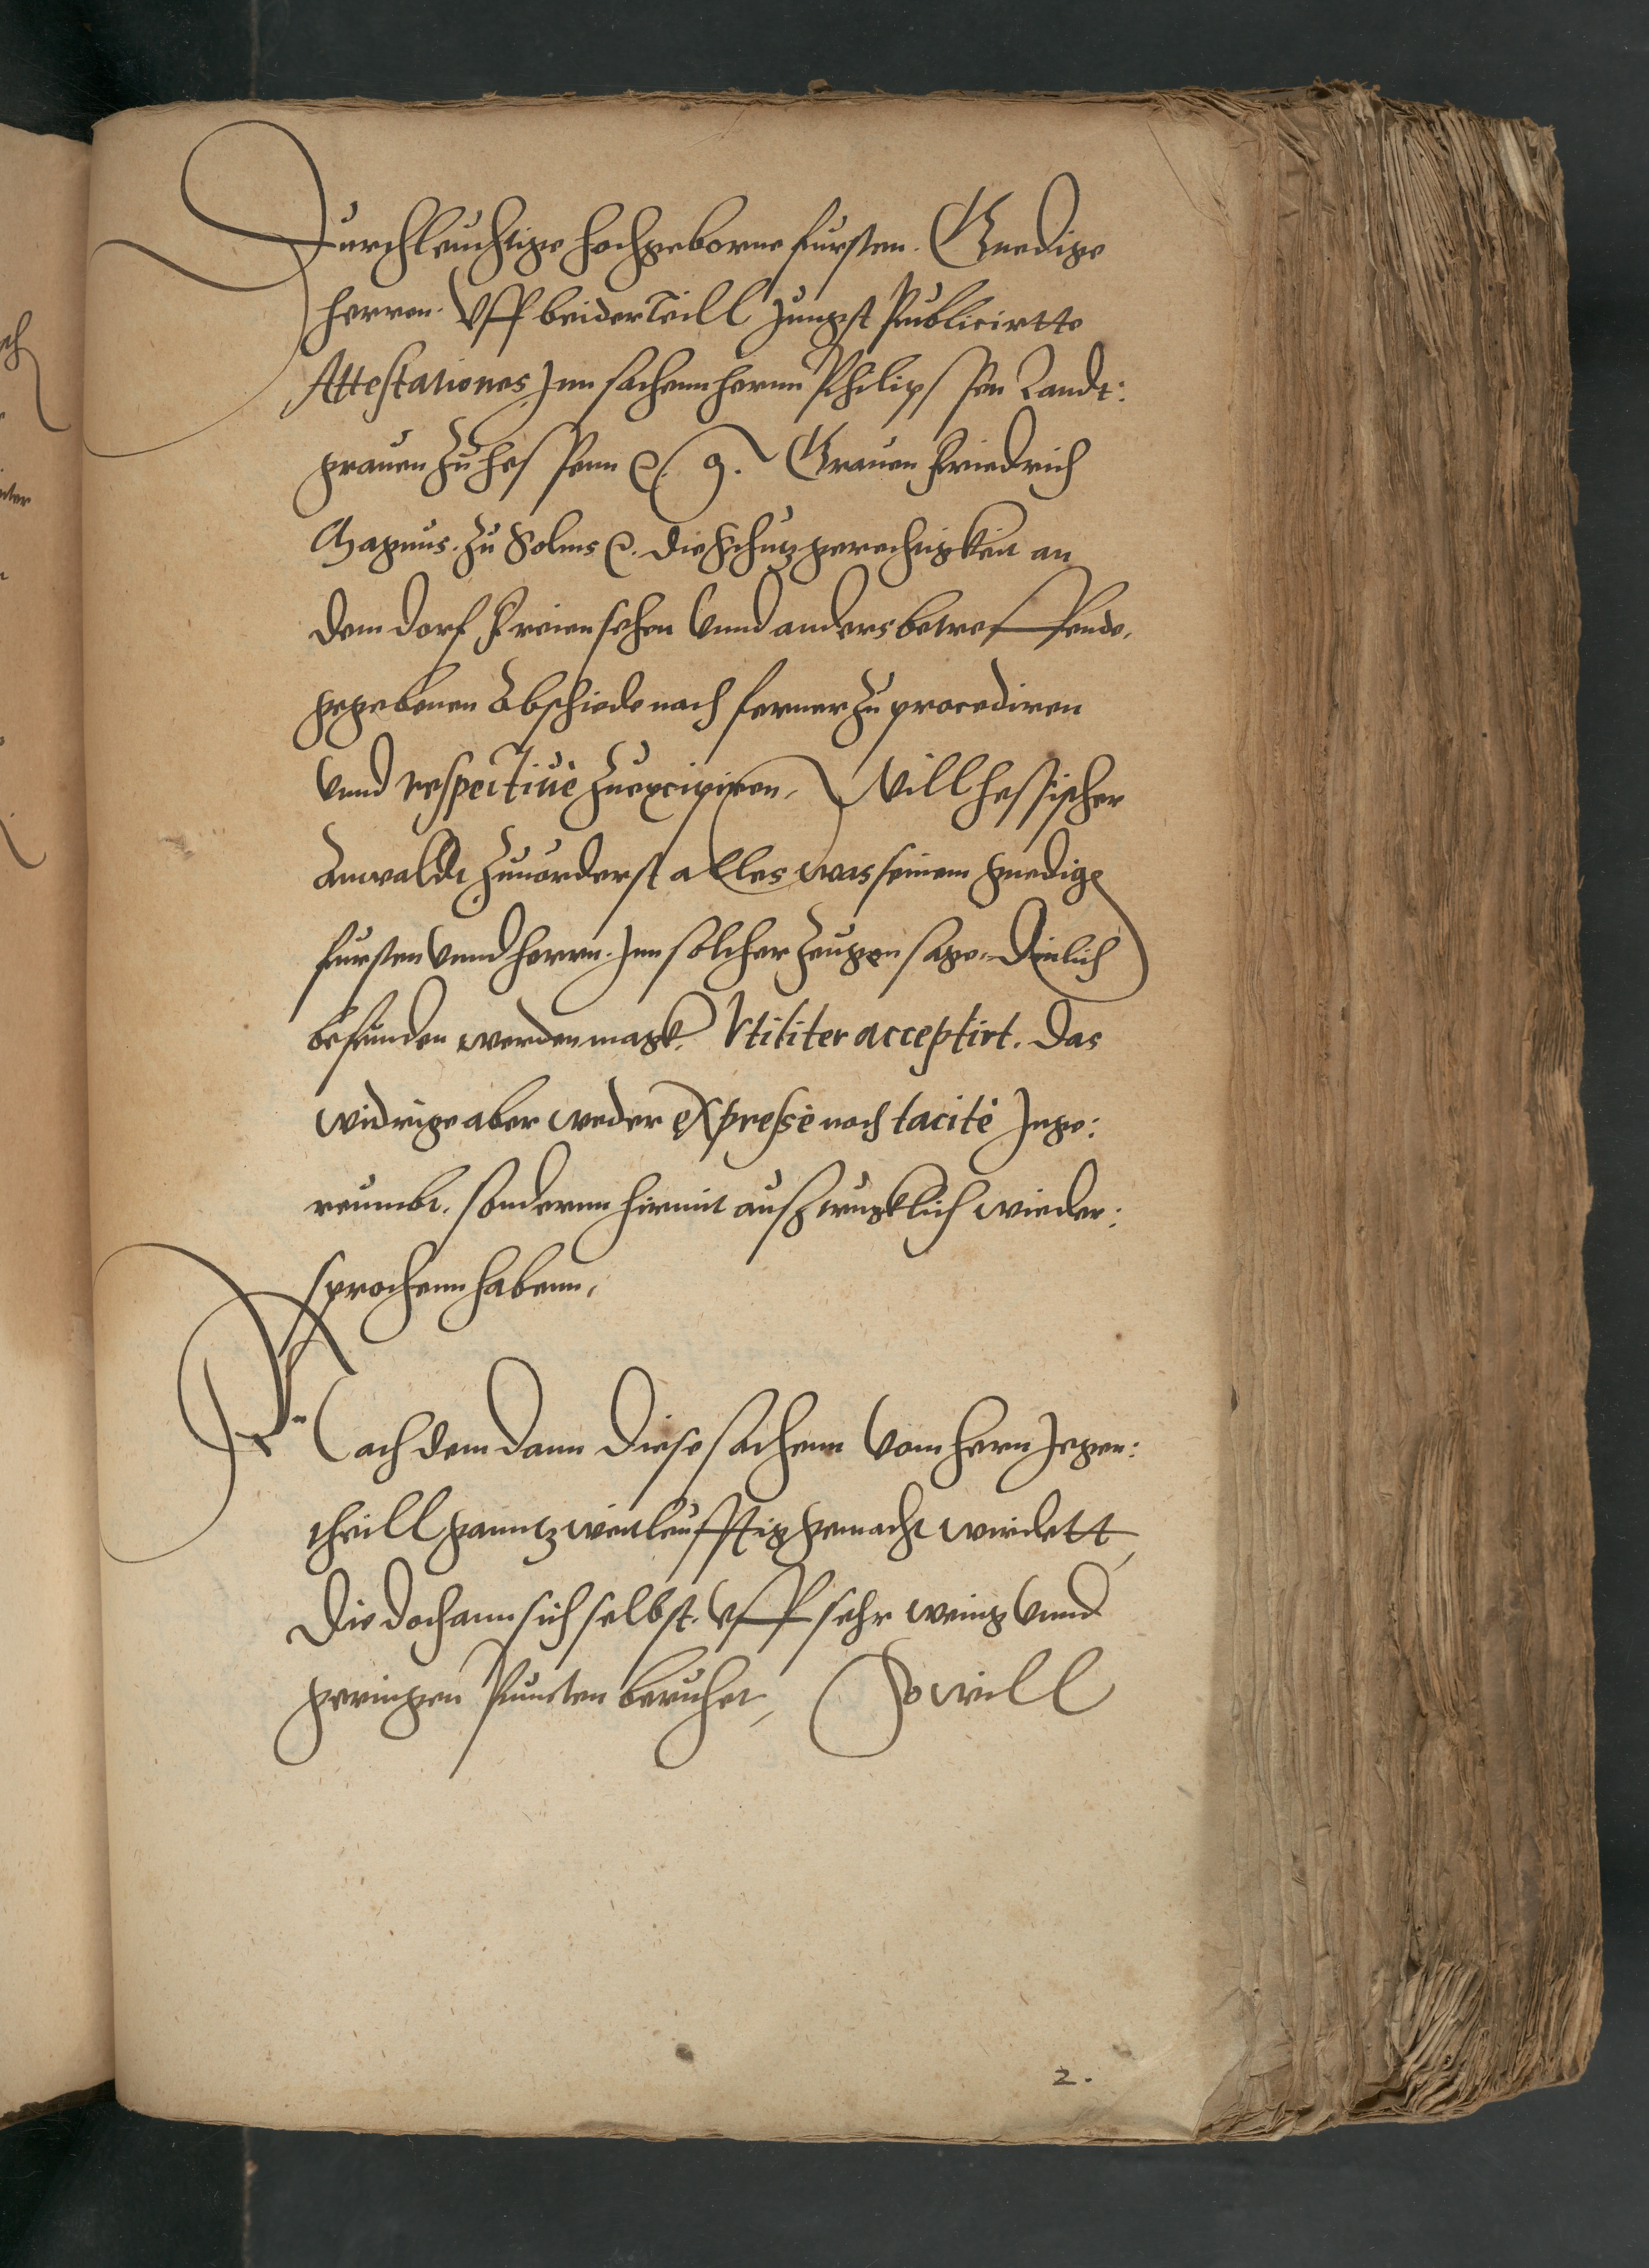 Durchleuchtige hochgeborne fursten. Gnedige
herren. Vff beider Teill jungst Publicirtte
Attestationes Jnn sachenn herrn Philipssen Landt:
grauen zu Hessenn &. g. Grauen Friedrich
Magnus. zu Solms &. die Schutzgerechtigkeit an
dem dorf Freiensehen vnnd anders betreffende,
gegebenen Abschiede nach ferner zu procediren
vnnd respectiuè zu excipiren, Will hessischer
Anwaldt zuuorderst alles was seinem gnedige
fursten vnnd herrn. Jnn solcher zeugen sage. Dinlich
befunden werden magk. Vtiliter acceptirt. Das
widrige aber weder expressè noch tacitè Jnge:
reumbt. sondernn hirmit ausztrugklich wieder:
sprochenn habenn,
Nachdem dann Diese sachenn vom hern Jegen:
theill ganntz weitleufftig gemacht wirdett,
Die doch ann sich selbst. vff sehr wenig vnnd
geringen Puncten beruhet, So will
2.